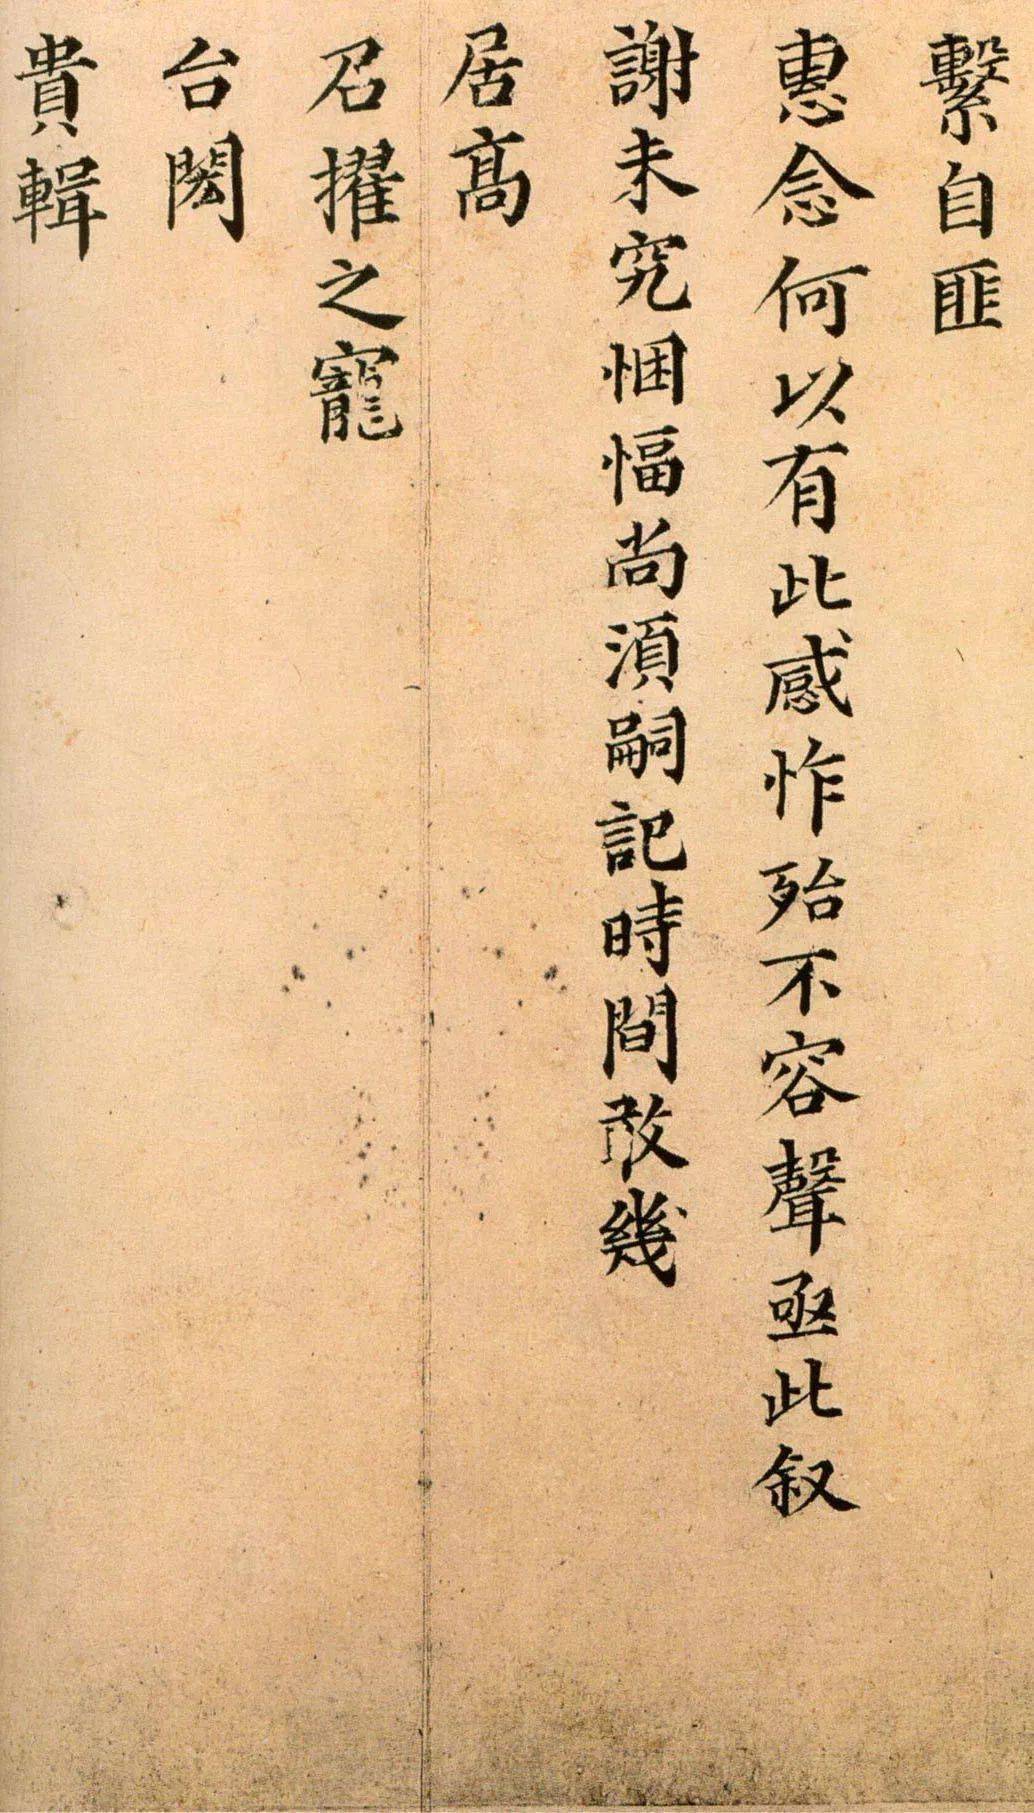 繫自匪
惠念何以有此感怍殆不容聲亟此叙
謝未究悃愊尚湏嗣記時間敢幾
居髙
召擢之寵
台閎
貴輯